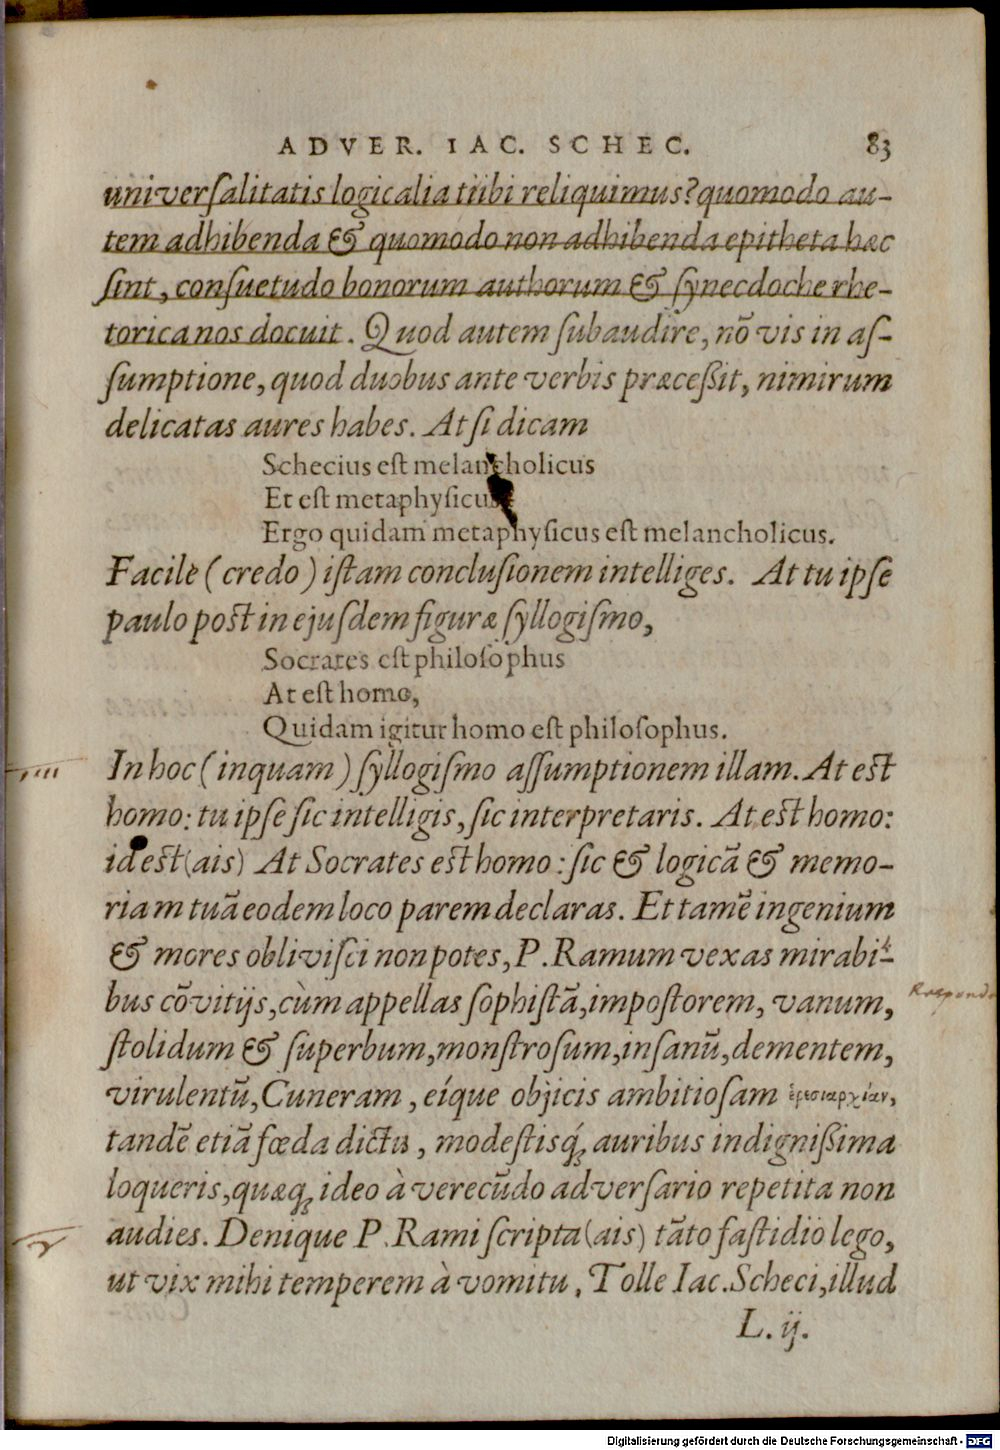 ADVER. IAC. SCHEC. 83
univerſalitatis logicalia tiibi reliquimus? quomodo au-
tem adhibenda & quomodo non adhibenda epitheta hæc
ſint, conſuetudo bonorum authorum & ſynecdoche rhe-
torica nos docuit. Quod autem ſubaudire, nō vis in aſ-
ſumptione, quod duobus ante verbis præceßit, nimirum
delicatas aures habes. At ſi dicam
Schecius eſt melancholicus
Et eſt metaphyſicus
Ergo quidam metaphyſicus eſt melancholicus.
Facile (credo) iſtam concluſionem intelliges. At tu ipſe
paulo poſt in ejuſdem figuræ ſyllogiſmo,
Socrates eſt philoſophus
At eſt homo,
Quidam igitur homo eſt philoſophus.
In hoc (inquam) ſyllogiſmo aſſumptionem illam. At eſt
homo: tu ipſe ſic intelligis, ſic interpretaris. At eſt homo:
id eſt (ais) At Socrates eſt homo: ſic & logicā & memo-
riam tuā eodem loco parem declaras. Et tamē ingenium
& mores obliviſci non potes, P. Ramum vexas mirabi-
bus cōvitijs, cùm appellas ſophiſtā, impoſtorem, vanum,
ſtolidum & ſuperbum, monſtroſum, inſanū, dementem,
virulentū, Cuneram, eíque objicis ambitioſam ἐρεσιαρχίαν,
tandē etiā fœda dictu, modeſtisq́; auribus indignißima
loqueris, quæq; ideo à verecūdo adverſario repetita non
audies. Denique P. Rami ſcripta (ais) tāto faſtidio lego,
ut vix mihi temperem à vomitu. Tolle Iac. Scheci, illud
L. ij.
Digitalisierung gefördert durch die Deutsche Forschungsgemeinschaft - DFG